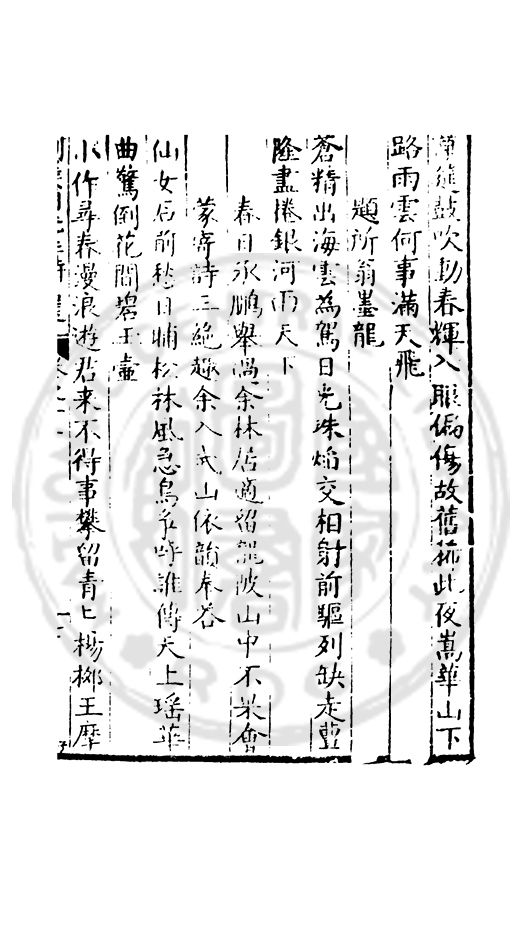 鼓吹動春輝入眼偏傷故舊稀此夜嵩華山下
路雨雲何事滿天飛
題所翁墨龍
蒼精出海雲為駕日光珠焰交相射前驅列缺走豐
隆盡捲銀河雨天下
春日永鵬舉過余林居適留龍陂山中不米會
蒙寄詩三絕趣余入武山依韻奉答
仙女居前愁日晡松林風急鳥爭呼誰傳天上瑤華
曲驚倒花間碧玉壺
小作尋春漫浪遊君来不得事攀留青匕楊栁王